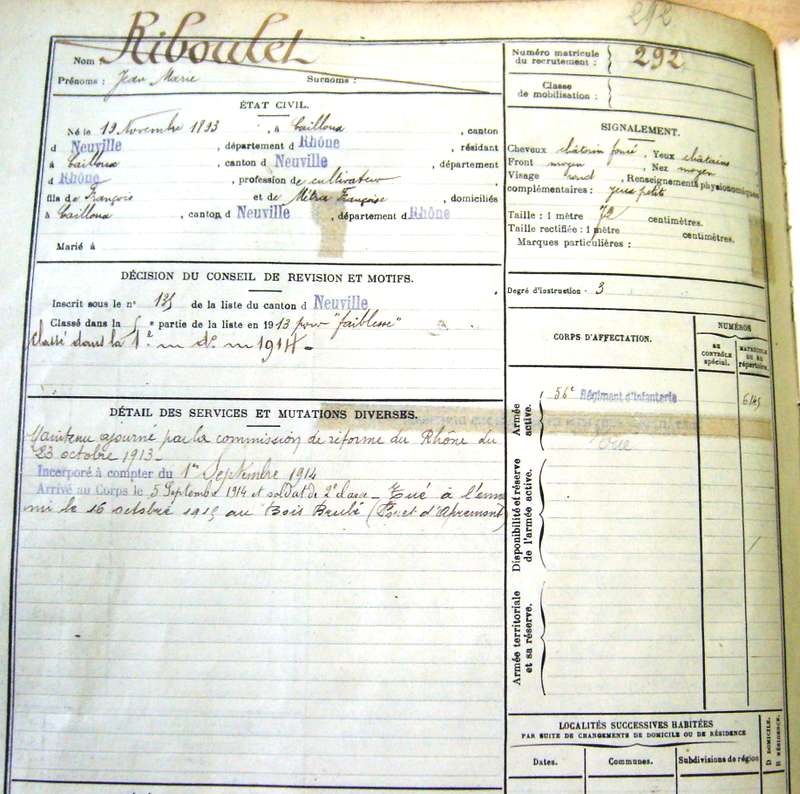 292
Nom : Riboulet
Prénoms : Jean Marie Surnoms :
Numéro matricule du recrutement : 292
Classe de mobilisation :
ÉTAT CIVIL.
Né le 19 Novembre 1893, à Cailloux, canton
d Neuville, département d Rhône, résidant
à Cailloux, canton d Neuville, département
d Rhône, profession de cultivateur
fils de François et de Métra Françoise, domiciliés
à Cailloux, canton d Neuville, département d Rhône
Marié à
SIGNALEMENT.
Cheveux châtain foncé, Yeux châtains
Front moyen, Nez moyen
Visage rond, Renseignements physionomiques
complémentaires : yeux petits
Taille : 1 mètre 72 centimètres.
Taille rectifiée : 1 mètre centimètres.
Marques particulières :
DÉCISION DU CONSEIL DE REVISION ET MOTIFS.
Inscrit sous le n° 135 de la liste du canton d Neuville
Classé dans la 5e partie de la liste en 1913 pour "faiblesse"
Classé dans la 1e — do — 1914 -
Degré d'instruction : 3
CORPS D'AFFECTATION.
NUMÉROS
AU CONTRÔLE spécial.
MATRICULE OU AU répertoire.
DÉTAIL DES SERVICES ET MUTATIONS DIVERSES.
Maintenu ajourné par la commission de réforme du Rhône du
23 octobre 1913 -
Incorporé à compter du 1er Septembre 1914
Arrivé au Corps le 5 Septembre 1914 et soldat de 2e classe - Tué à l'enne
mi le 16 octobre 1915 au Bois Brulé (Foret d'Apremont)
Armée active.
56e Régiment d'Infanterie 6145
Tué
Disponibilité et réserve de l'armée active.
Armée territoriale et sa réserve.
LOCALITÉS SUCCESSIVES HABITÉES
PAR SUITE DE CHANGEMENTS DE DOMICILE OU DE RÉSIDENCE
Dates. Communes. Subdivisions de région
D. DOMICILE.
R. RÉSIDENCE.